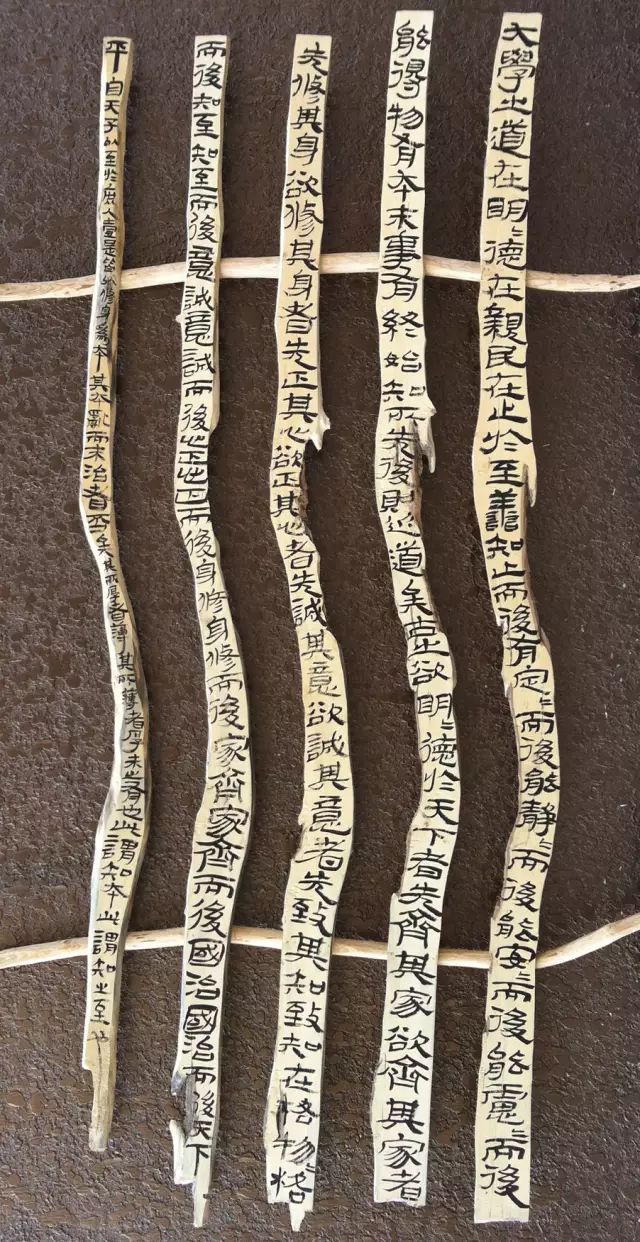 大學之道在明〻德在親民在止於至善知止而後有定〻而後能靜〻而後能安〻而後能慮〻而後
能得物有本末事有終始知所先後則近道矣古之欲明〻德於天下者先齊其家欲齊其家者
先修其身欲修其身者先正其心欲正其心者先誠其意欲誠其意者先致其知致知在格物〻格
而後知至知至而後意誠意誠而後心正心正而後身修身修而後家齊家齊而後國治國治而後天下
平自天子以至於庶人壹是皆以修身為本其本亂而末治者否矣其所厚者薄其所薄者厚未之有也此謂知本此謂知之至也